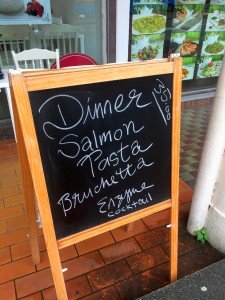 Dinner
Salmon
Pasta
Bruchetta
Enzyme
cocktail